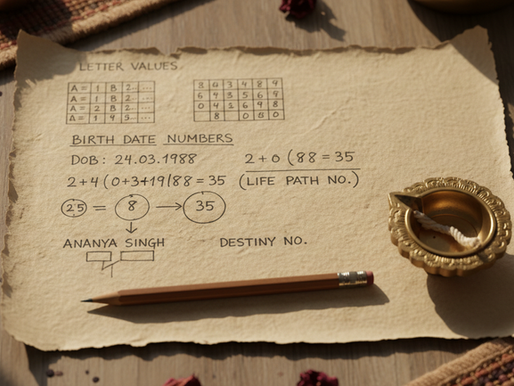 LETTER VALUES
A= 1 B 2 ...
A= 1 B 2 ...
A= 2 B 2 ...
A= 1 4 5 ...
8 6 3 4 8 9
6 9 3 5 6 9
0 4 2 6 9 8
8 0 5 0
BIRTH DATE NUMBERS
DOB: 24.03.1988
2+0 (88=35
2+4(0+3+19/88=35
(LIFE PATH NO.)
25 = 8 → 35
ANANYA SINGH
DESTINY NO.